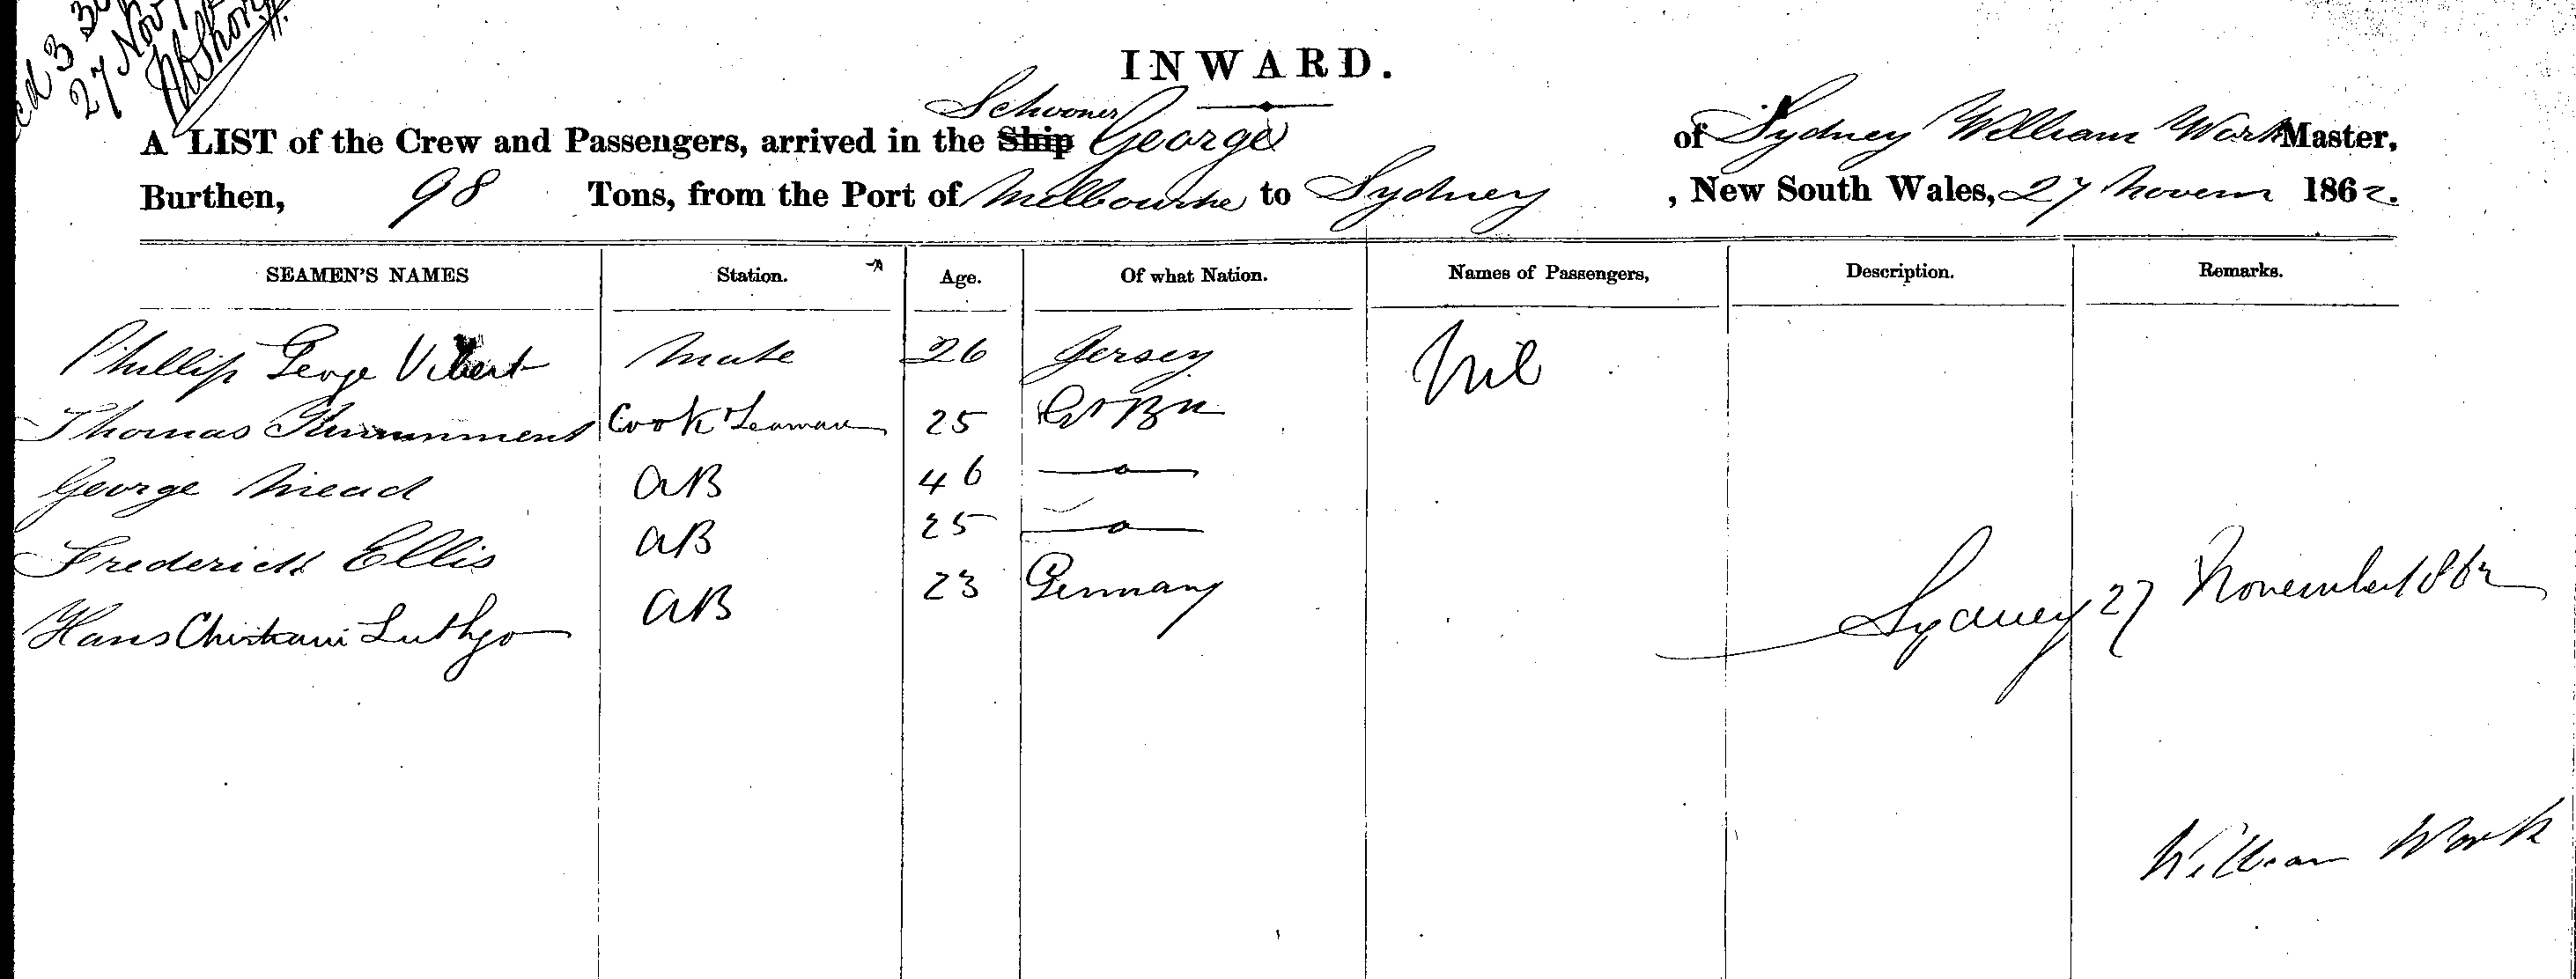 3
27 Nov
INWARD.
Schooner
A LIST of the Crew and Passengers, arrived in the Ship George of Sydney William Work Master,
Burthen, 98 Tons, from the Port of Melbourne to Sydney , New South Wales, 27 Novem 1862.
SEAMEN'S NAMES Station. Age. Of what Nation. Names of Passengers, Description. Remarks.
Phillip George Vibert Mate 26 Jersey Nil
Thomas Cook & Seaman 25 Gt Bn
George Mead AB 46 —o—
Frederick Ellis AB 25 —o—
Hans Christian AB 23 Germany
Sydney 27 November 1862
William Work